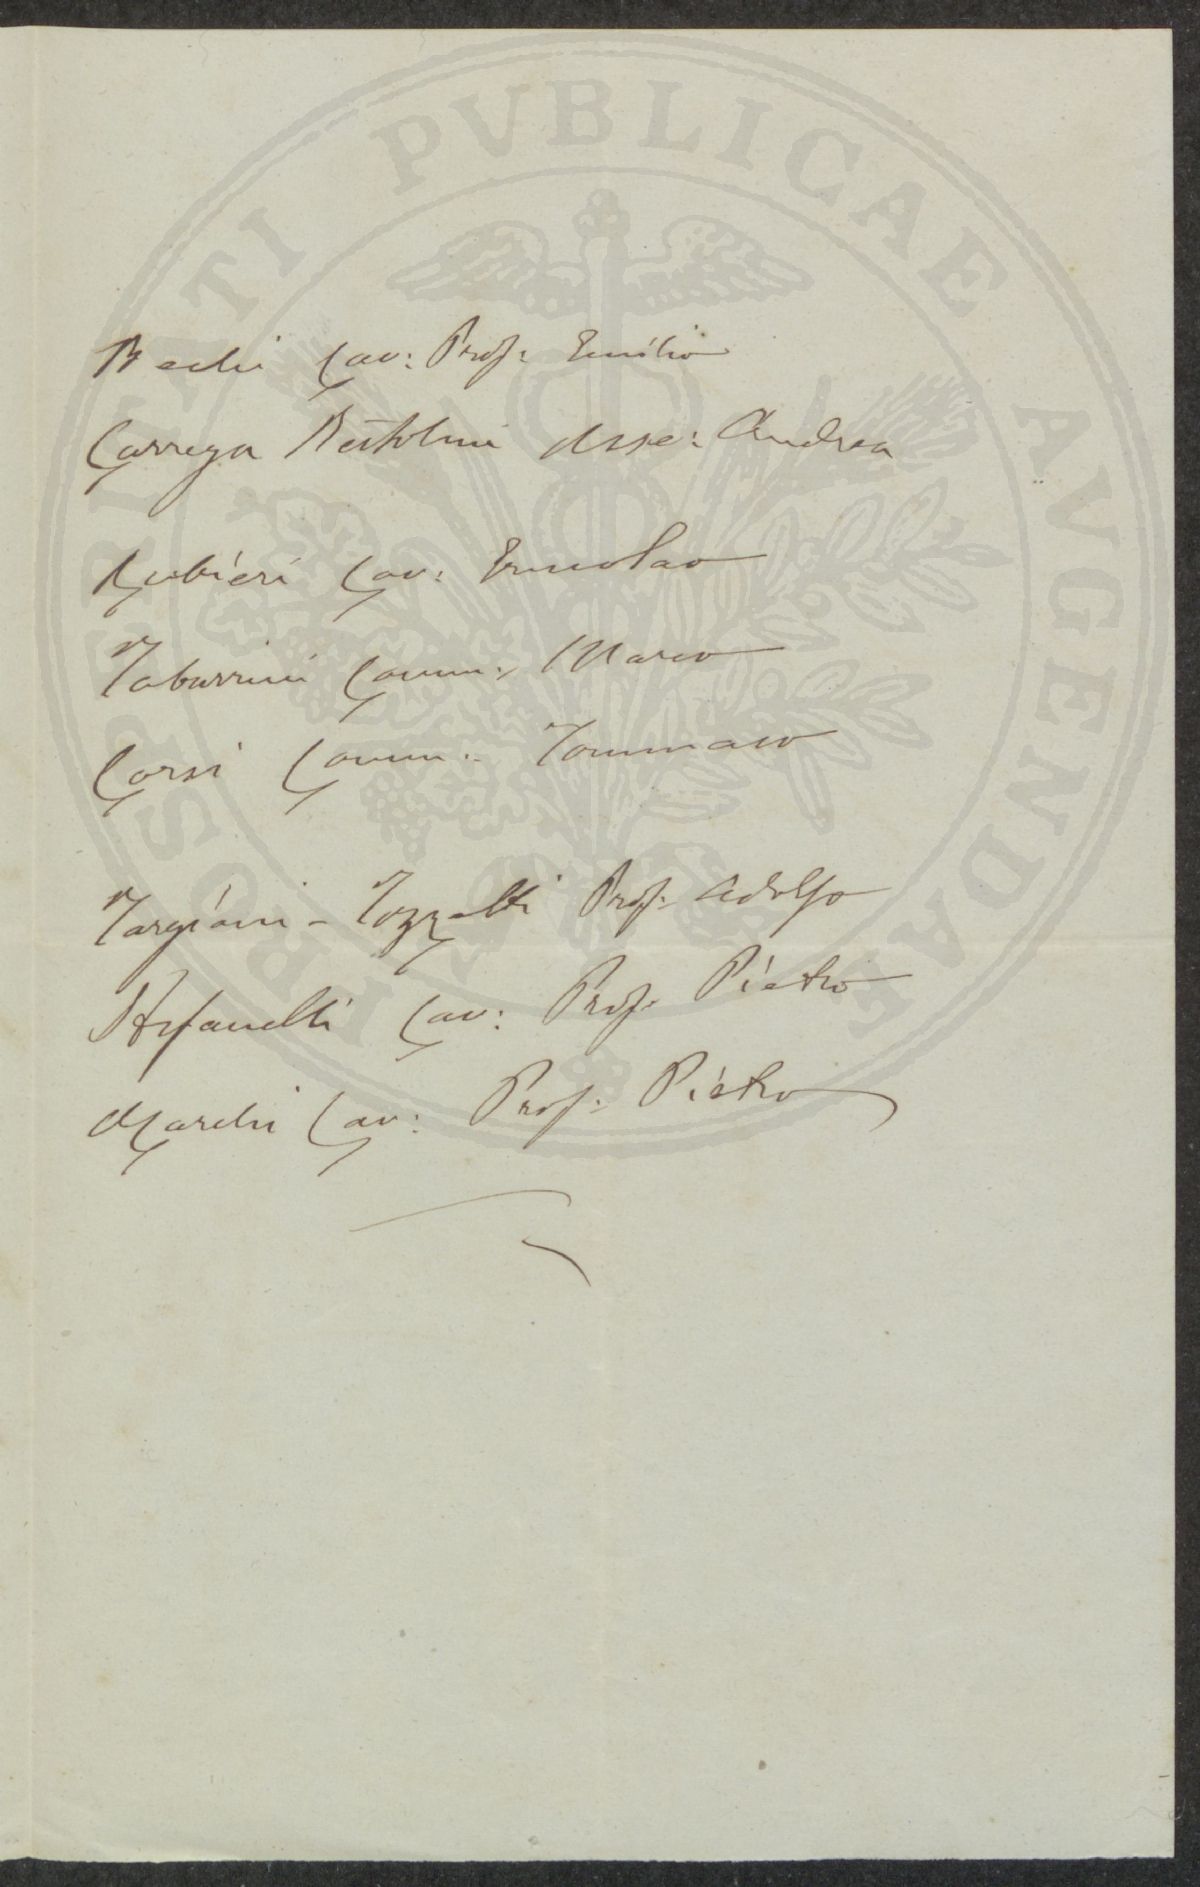 Bechi Cav: Prof: Emilio
Carrega Bertolini Asse: Andrea
Rubieri Cav: Ermolao
Tabarrini Comm: Marco
Corsi Comm: Tommaso
Targioni - Tozzetti Prof: Adolfo
Stefanelli Cav: Prof: Pietro
Marchi Cav: Prof: Pietro
PROSPERITATI PVBLICAE AVGENDAE